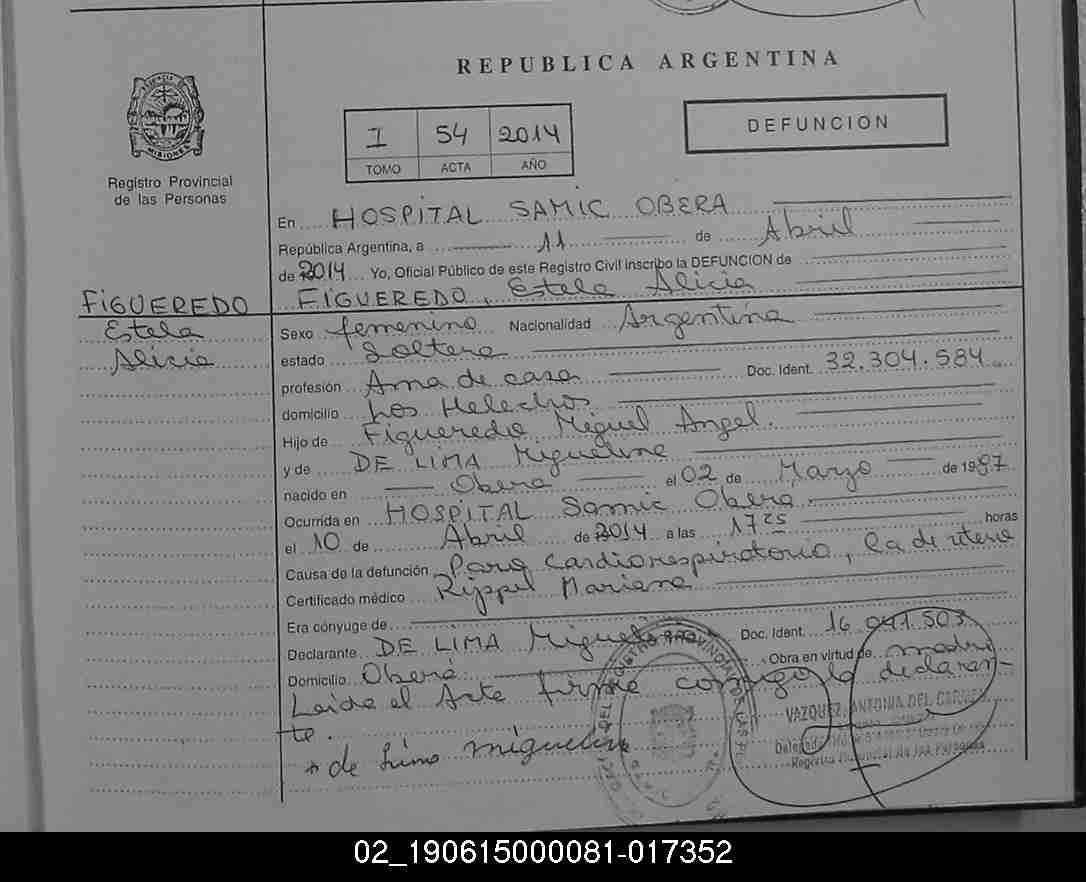 REPUBLICA ARGENTINA
PROVINCIA
MISIONES
Registro Provincial
de las Personas
I 54 2014
TOMO ACTA AÑO
DEFUNCION
En HOSPITAL SAMIC OBERA
República Argentina, a 11 de Abril
de 2014 Yo, Oficial Público de este Registro Civil inscribo la DEFUNCION de
FIGUEREDO, Estela Alicia
FIGUEREDO
Estela
Alicia
Sexo femenino Nacionalidad Argentina
estado Soltera
profesión Ama de casa Doc. Ident. 32.304.584
domicilio Los Helechos
Hijo de Figueredo, Miguel Angel.
y de DE LIMA Miguelina
nacido en Obera el 02 de Marzo de 1987
Ocurrida en HOSPITAL Samic Obera.
el 10 de Abril de 2014 a las 17 25 horas
Causa de la defunción Paro Cardiorespiratorio, Ca de utero
Certificado médico Rippel Mariana
Era cónyuge de
Declarante DE LIMA Miguelina Doc. Ident. 16.041.503
Domicilio Oberá Obra en virtud de madre
Leida el Acta firma conmigo la declaran-
te.
* de Lima miguelina
REGISTRO PROVINCIAL DE LAS
VAZQUEZ, ANTONIA DEL CARMEN
Registro Provincial de las Personas
02_190615000081-017352